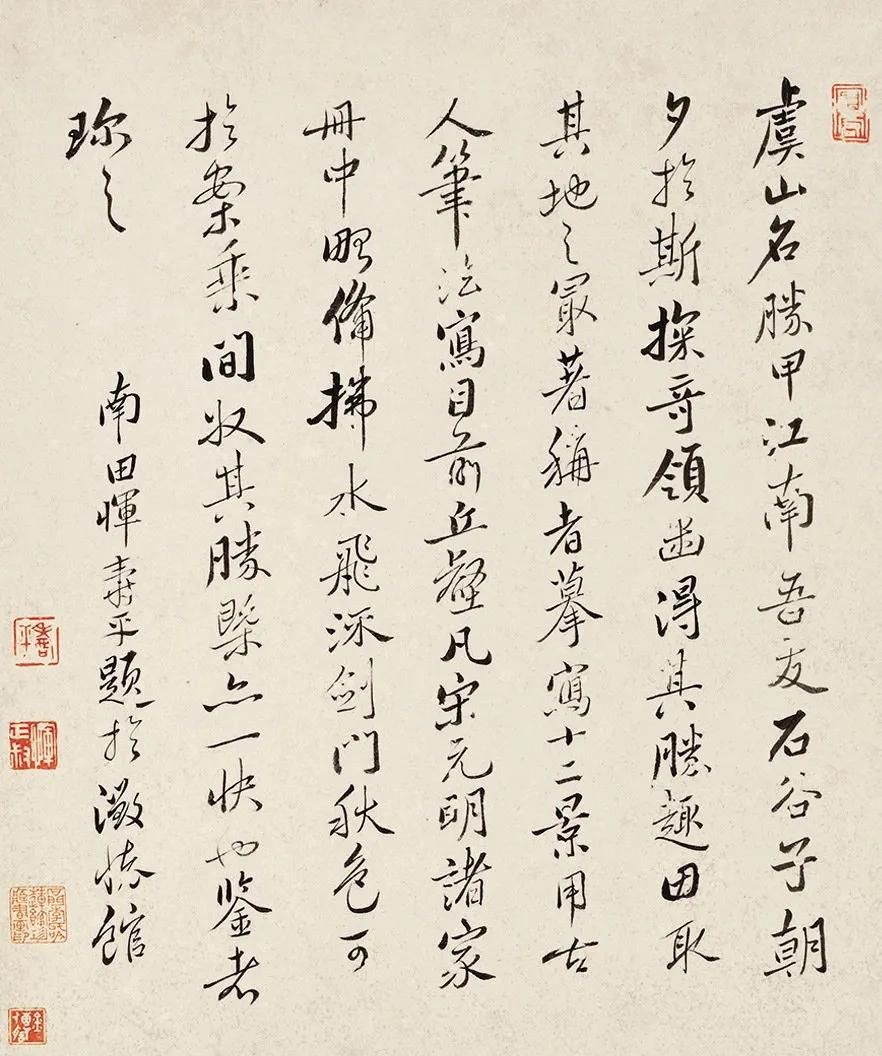 虞山名勝甲江南吾友石谷子朝
夕於斯探奇領幽得其勝趣因取
其地之最著稱者摹寫十二景用古
人筆法寫目前丘壑凡宋元明諸家
冊中略備拂水飛流劍門秋色可
於案乘間收其勝槩亦一快也鑒者
珎之
南田惲壽平題於澂懷館
壽平
惲正叔